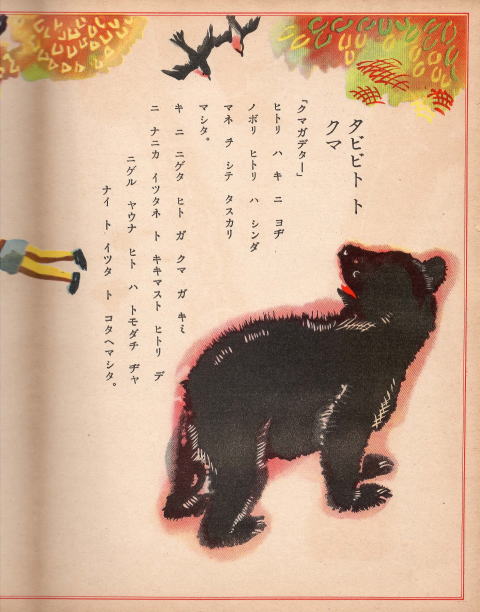 タビビト ト
クマ
「クマガデター」
ヒトリ ハ キ ニ ヨヂ
ノボリ ヒトリ ハ シンダ
マネ ヲ シテ タスカリ
マシタ。
キ ニ ニゲタ ヒト ガ クマ ガ キミ
ニ ナニカ イツタネ ト キキマスト ヒトリ デ
ニゲル ヤウナ ヒト ハ トモダチ ヂャ
ナイ ト イツタ ト コタヘマシタ。